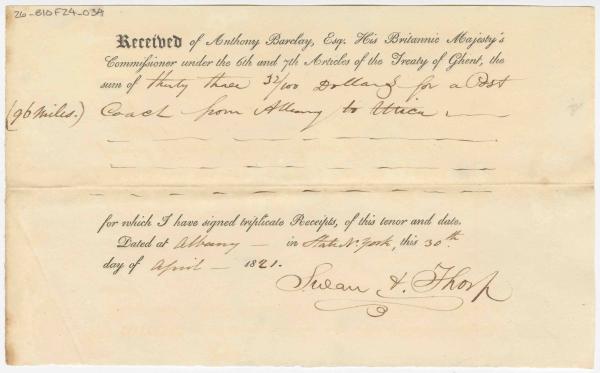 26-B10F24-03A
Received of Anthony Barclay, Esq. His Britannic Majesty's
Commissioner under the 6th and 7th Articles of the Treaty of Ghent, the
sum of thirty three 32/100 Dollars for a Post
(96 miles.) Coach from Albany to Utica
for which I have signed triplicate Receipts, of this tenor and date.
Dated at Albany in State N. York, this 30th
day of April 1821.
Swan & Thorp